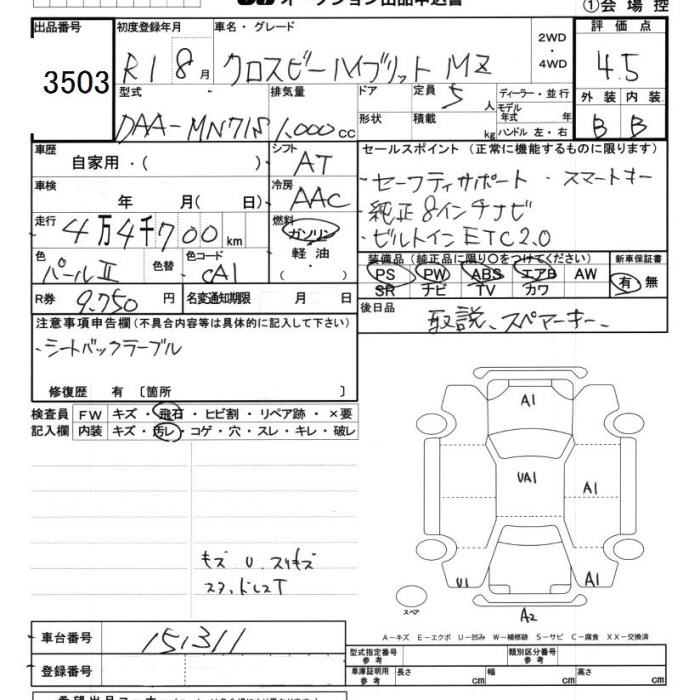 オークション出品申込書
①会場控
出品番号 初度登録年月 車名・グレード 評価点
3503 R1 8月 クロスビーハイブリット MZ 2WD・4WD 4.5
型式 排気量 ドア 定員 5人 ディーラー・並行 外装 内装
DAA-MN71S 1,000cc 形状 積載 kg モデル年式 年 ハンドル 左・右 B B
車歴 シフト セールスポイント (正常に機能するものに限ります)
自家用・( ) AT
・セーフティサポート ・スマートキー
車検 冷房
年 月( 日) AAC
・純正8インチナビ
走行 燃料
4万4千700km ガソリン
・ビルトインETC2.0
軽油
・( )
色 色替 色コード
パールⅡ CA1
装備品 (純正品に限り○をつけてください) 新車保証書
PS PW ABS エアB AW 有・無
SR ナビ TV カワ
R券 9,750円 名変通知期限 月 日
後日品 取説、スペアーキー、
注意事項申告欄(不具合内容等は具体的に記入して下さい)
・シートバックテーブル
修復歴 有 〔箇所 〕
検査員 FW キズ・飛石・ヒビ割・リペア跡・×要
記入欄 内装 キズ・汚レ・コゲ・穴・スレ・キレ・破レ
A1
UA1
A1
キズ U スリキズ
U1
A1
スペア
A2
A-キズ E-エクボ U-凹み W-補修跡 S-サビ C-腐食 XX-交換済
車台番号 151311
型式指定番号 参考 類別区分番号 参考
登録番号
車庫証明用 参考 長さ cm 幅 cm 高さ cm